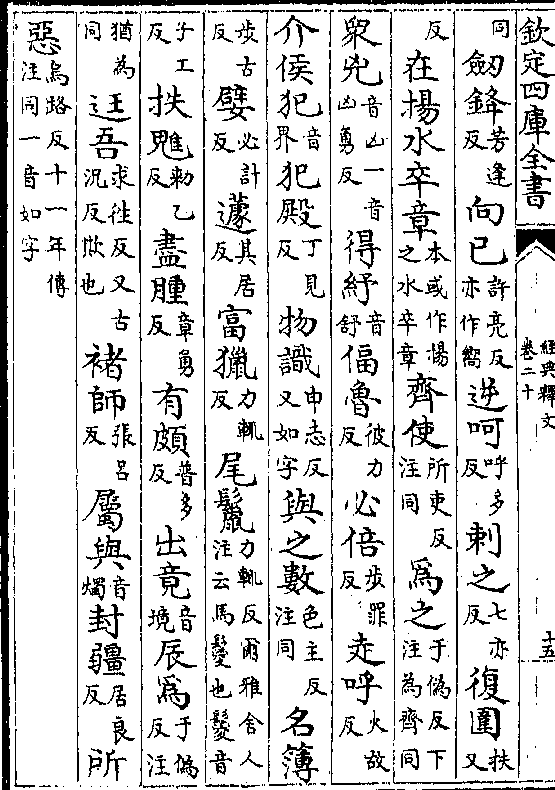 欽定四庫全書
經典釋文
卷二十
十五
同 劒鋒芳逢反 向已許亮反亦作嚮 逆呵呼多反 刺之七亦反 復圍扶又
反 在揚水卒章本或作揚之水卒章 齊使所吏反注同 爲之于偽反下注為齊同
衆兇音凶一音凶勇反 得紓音舒 偪魯彼力反 必倍步罪反 走呼火故反
介侯犯音界 犯殿丁見反 物識申志反又如字 與之數色主反注同 名簿
步古反 嬖必計反 蘧其居反 富獵力輒反 尾鬛力輒反爾雅舍人注云馬鬉也鬉音
子工反 抶魋勑乙反 盡腫章勇反 有頗普多反 出竟音境 辰爲于偽反注
猶為同 迋吾求往反又古況反欺也 褚師張呂反 屬與音燭 封疆居良反 所
惡烏路反十一年傳注同一音如字